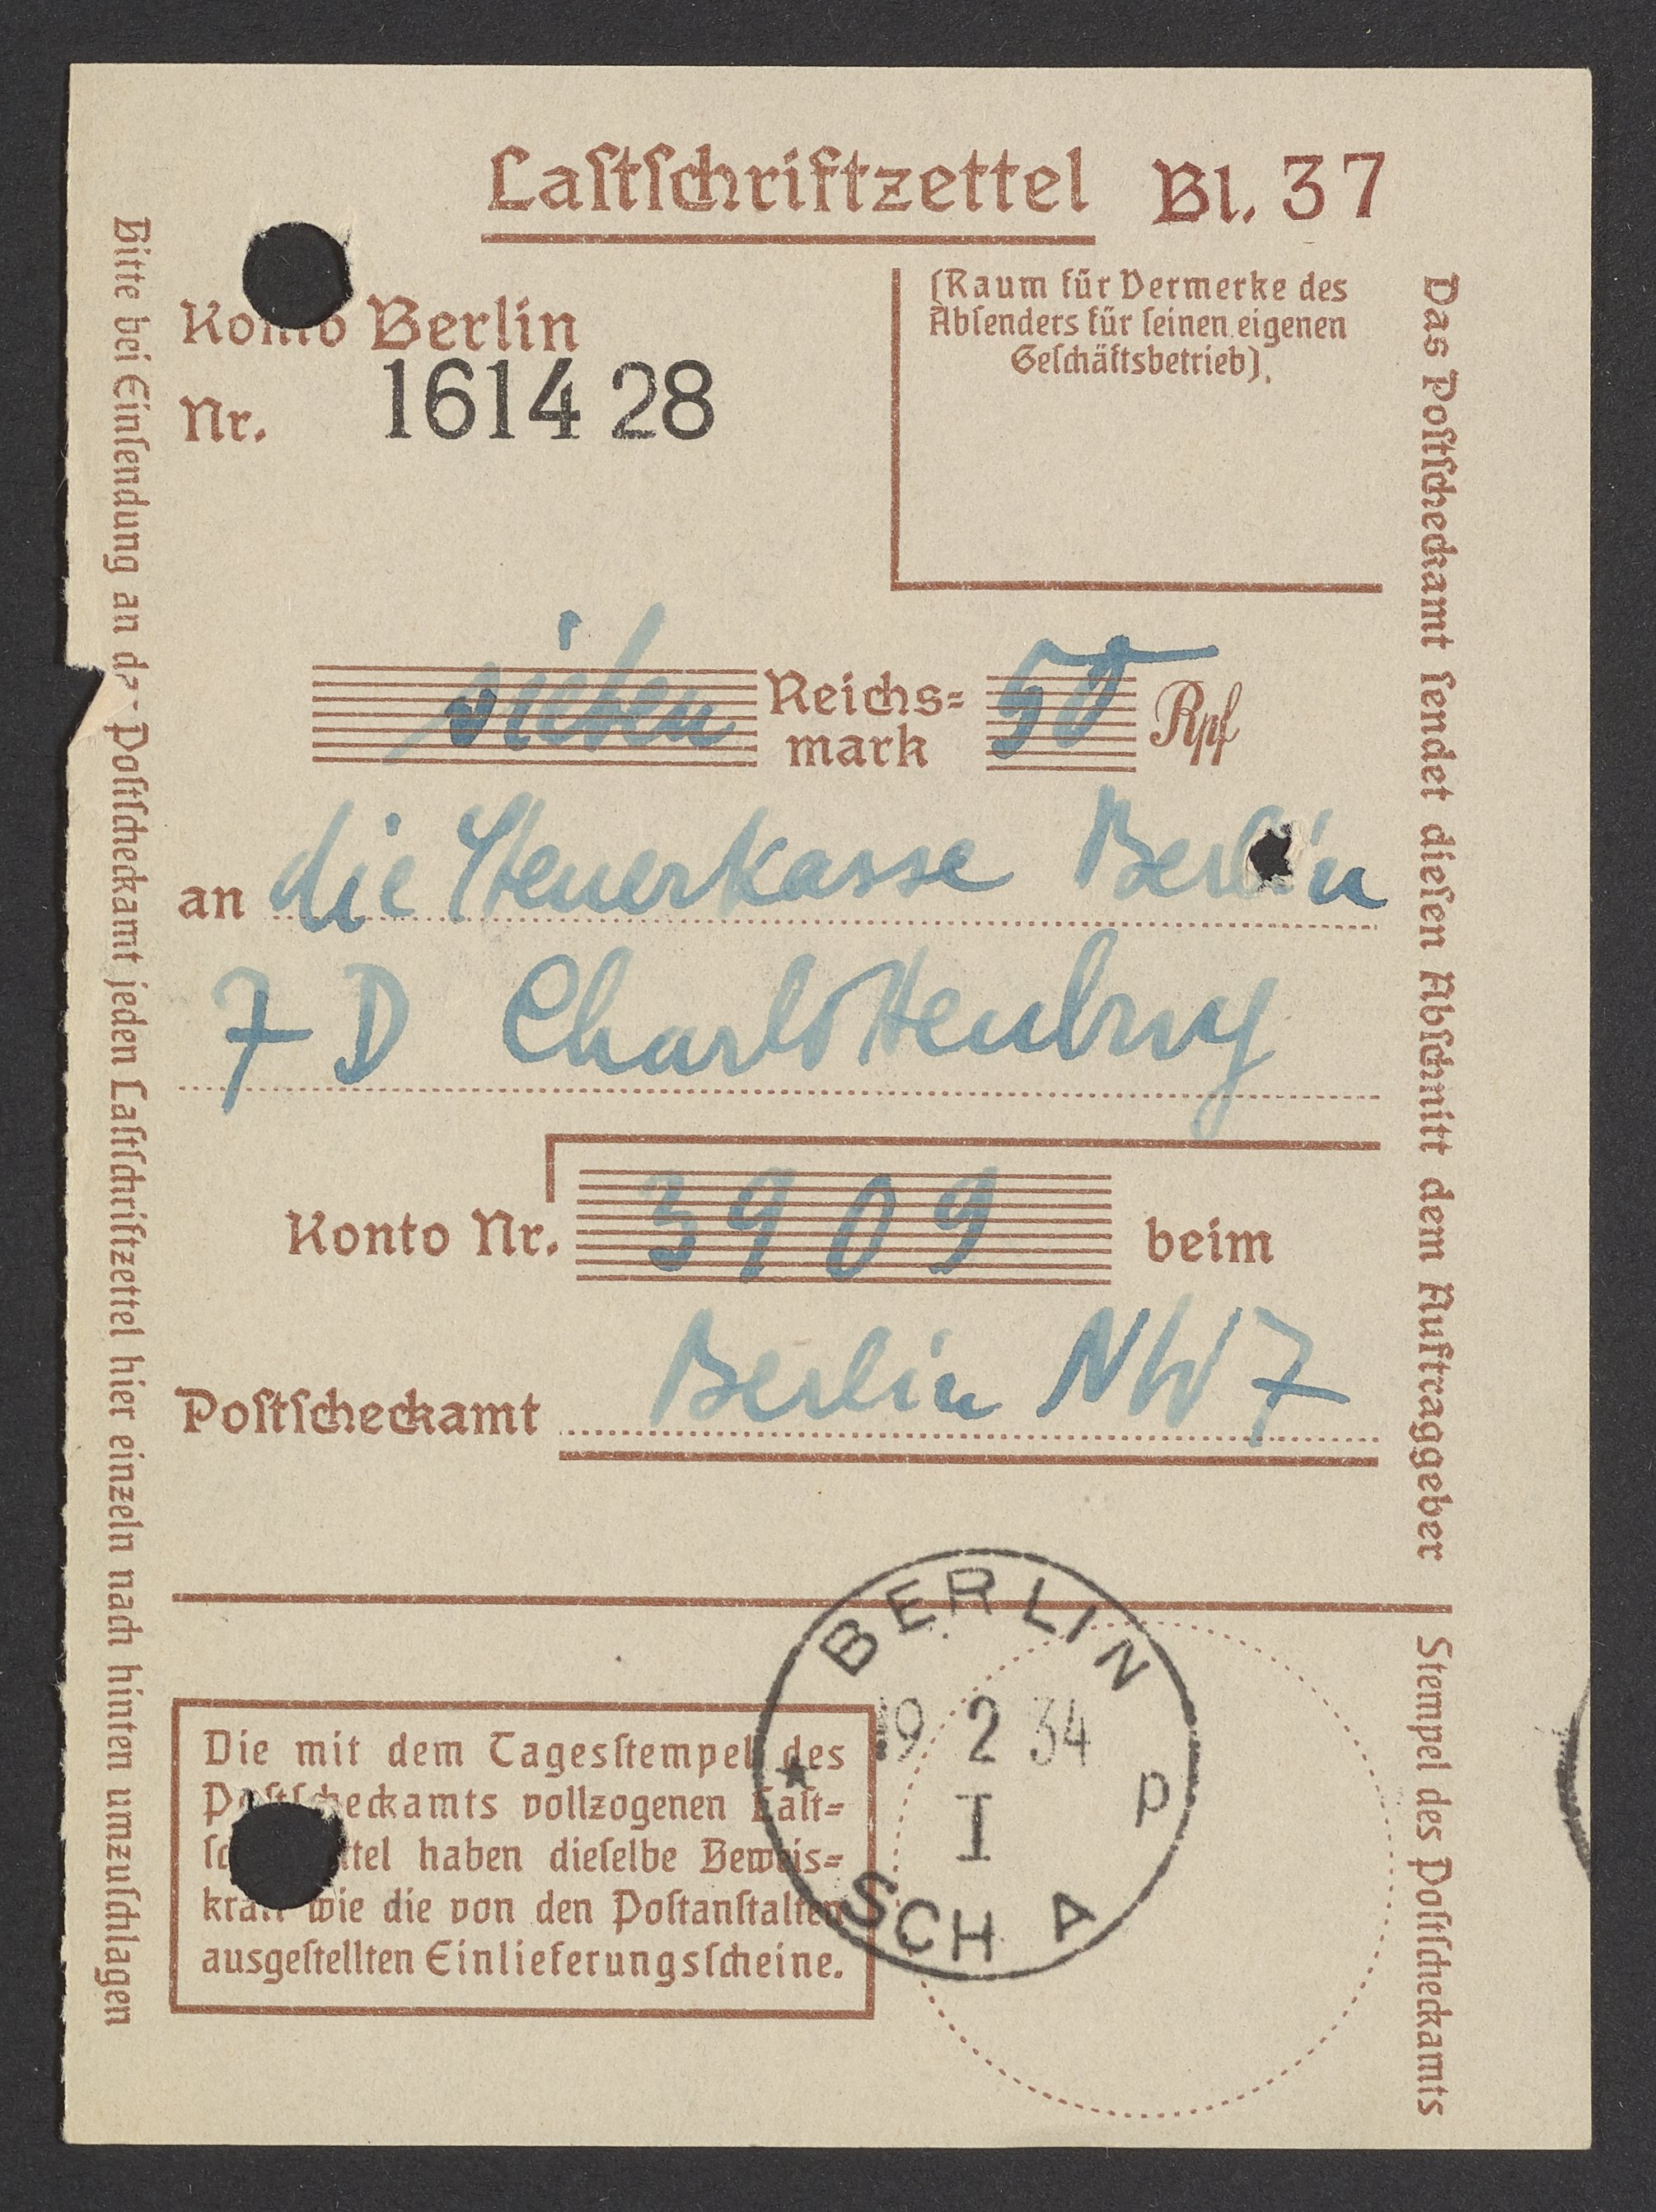 Lastschriftzettel Bl. 37
Konto Berlin
Nr. 1614 28
(Raum für Vermerke des
Absenders für seinen eigenen
Geschäftsbetrieb).
sieben Reichs= 50 Rpf
mark
an die Steuerkasse Berlin
7 D Charlottenburg
Konto Nr. 3909 beim
Postscheckamt Berlin NW 7
Die mit dem Tagesstempel des
Postscheckamts vollzogenen Last=
schriftzettel haben dieselbe Beweis=
kraft wie die von den Postanstalten
ausgestellten Einlieferungsscheine.
BERLIN
19 2 34
I P
SCH A
Bitte bei Einsendung an das Postscheckamt jeden Lastschriftzettel hier einzeln nach hinten umzuschlagen
Das Postscheckamt sendet diesen Abschnitt dem Auftraggeber
Stempel des Postscheckamts